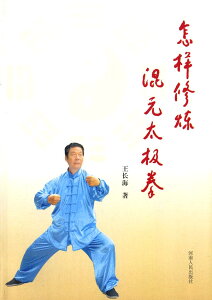 怎样修炼
混元太极拳
王长海 著
河南人民出版社